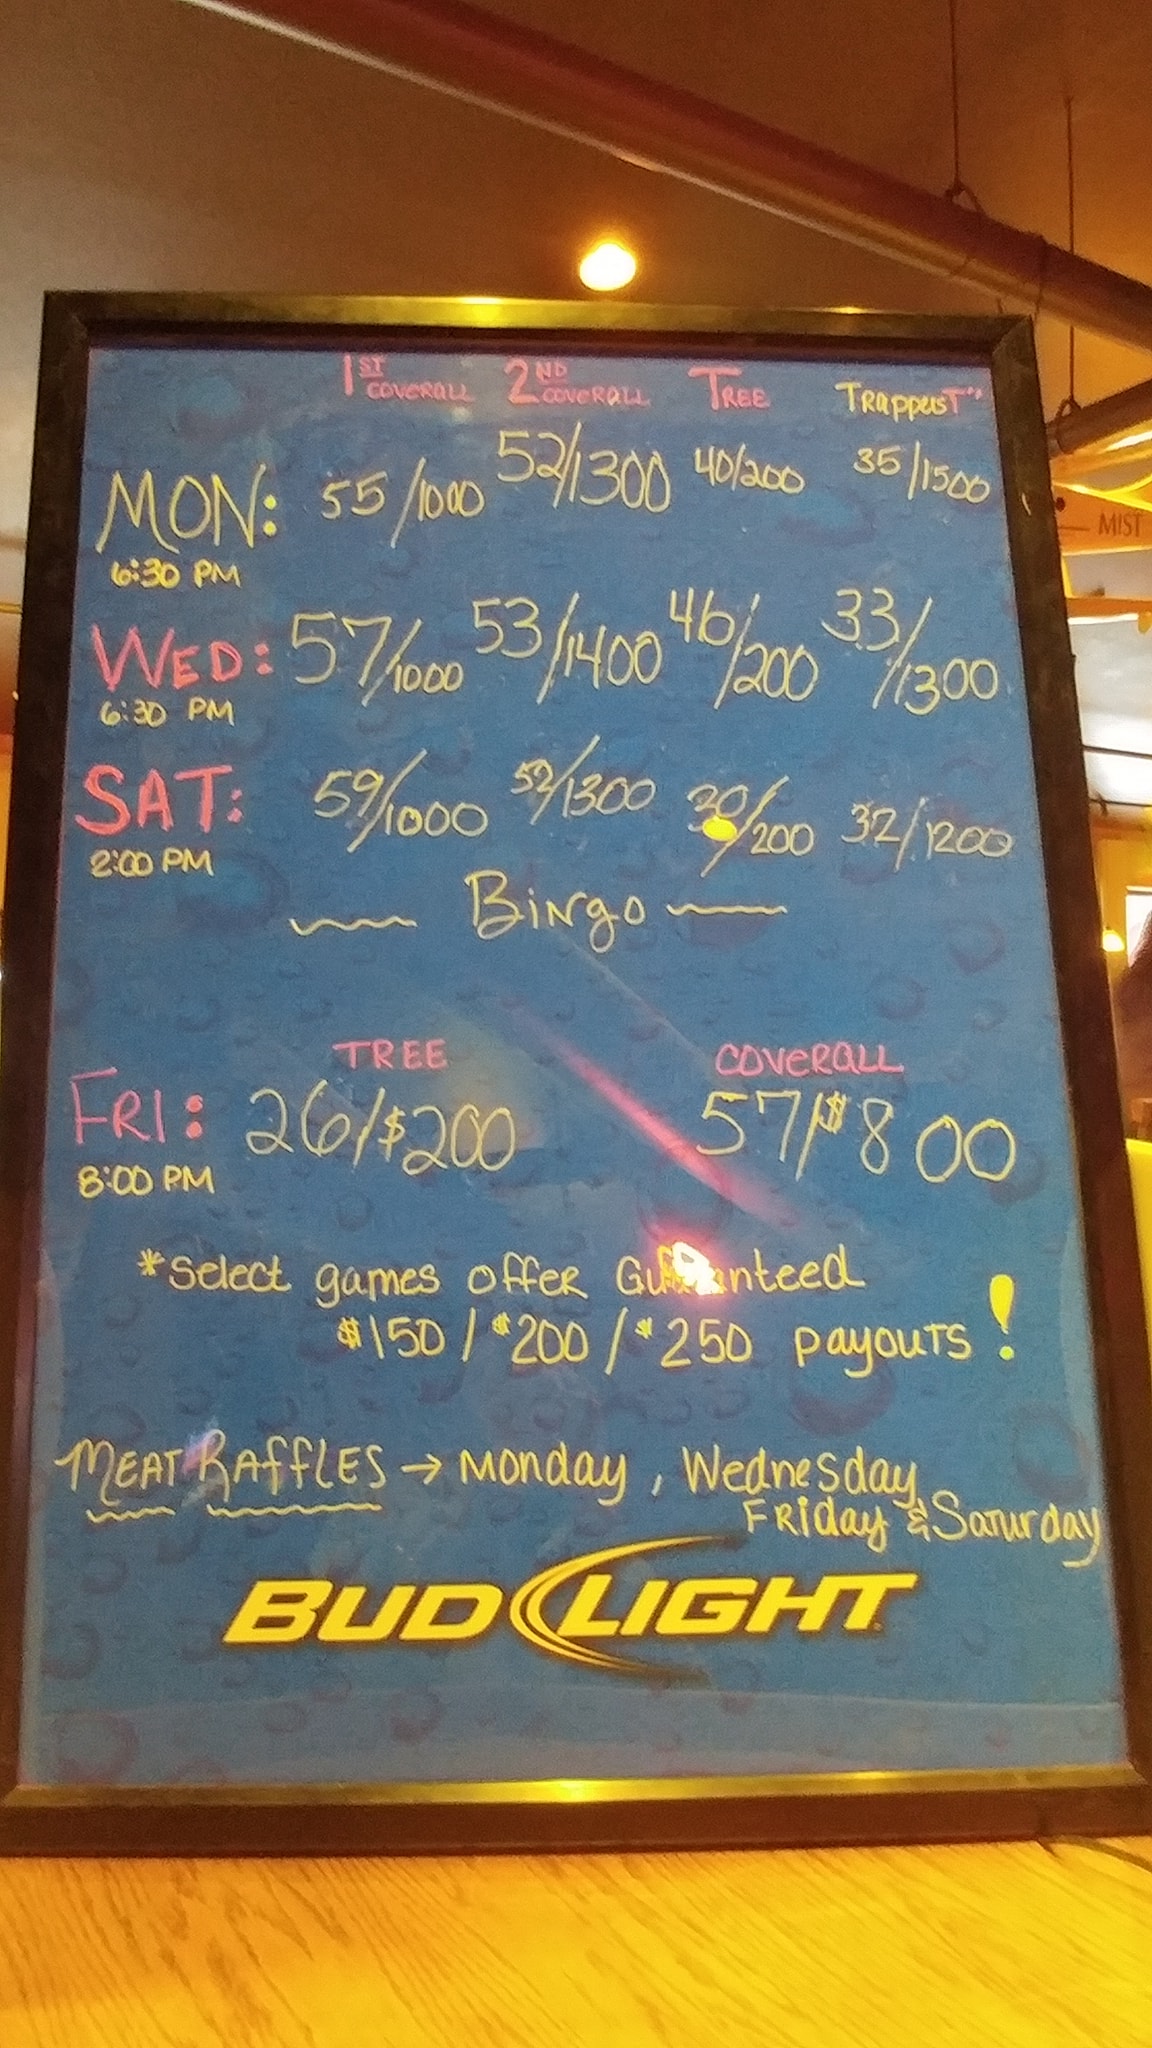 1ST COVERALL 2ND COVERALL TREE TRappers T"
MON: 55/1000 52/1300 40/200 35/1500
6:30 PM
WED: 57/1000 53/1400 46/200 33/1300
6:30 PM
SAT: 59/1000 52/1300 30/200 32/1200
2:00 PM
Bingo
TREE COVERALL
FRI: 26/$200 57/$800
8:00 PM
*Select games offer Guaranteed
$150/$200/$250 payouts!
MEAT RAffLES → Monday, Wednesday
Friday & Saturday
BUD LIGHT
MIST